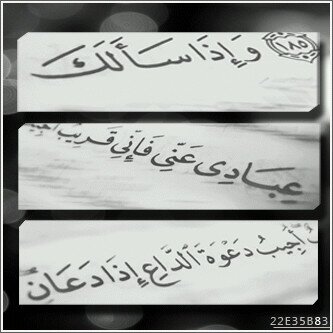 ١٨٥ وَإِذَا سَأَلَكَ
عِبَادِى عَنِّي فَإِنِّي قَرِيبٌ
أُجِيبُ دَعْوَةَ ٱلدَّاعِ إِذَا دَعَانِ
22E35B83